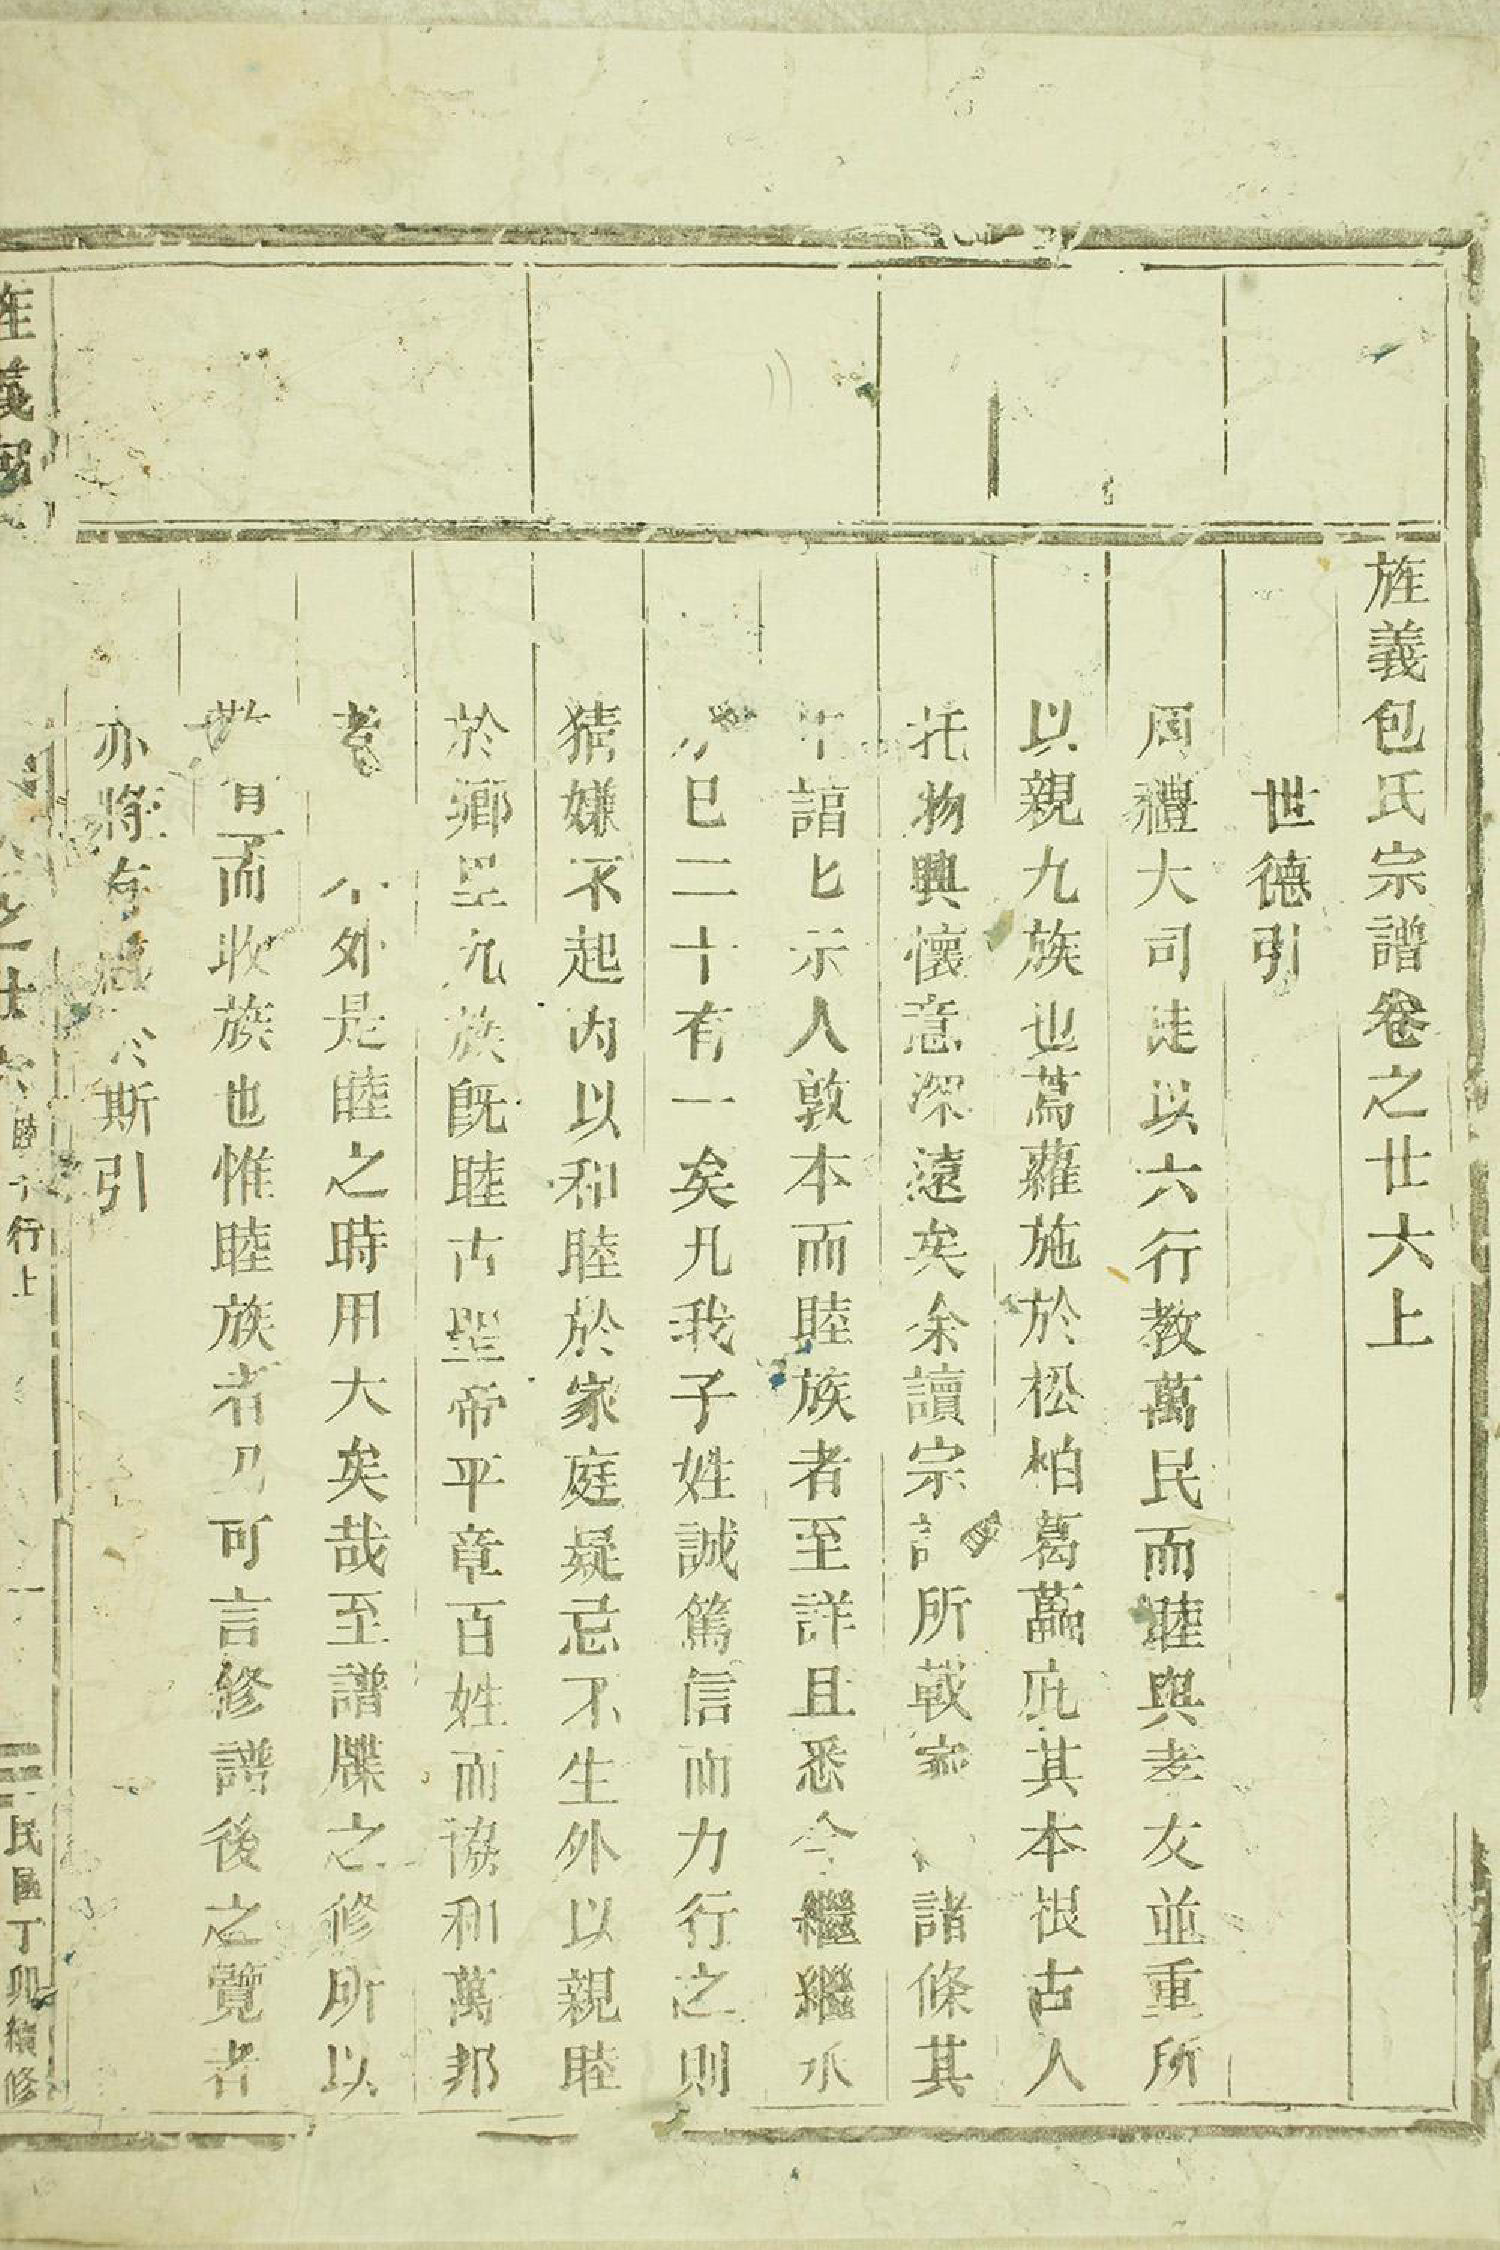 旌義包氏宗譜卷之廿六上
世德引
周禮大司徒以六行教萬民而睦與孝友並重所
以親九族也蔦蘿施於松柏葛藟庇其本根古人
托物興懷意深遠矣余讀宗譜所載家諸條其
諄諄以示人敦本而睦族者至詳且悉今繼繼承
巳二十有一矣凡我子姓誠篤信而力行之則
猜嫌不起內以和睦於家庭疑忌不生外以親睦
於鄉里九族旣睦古聖帝平章百姓而協和萬邦
者不外是睦之時用大矣哉至譜牒之修所以
敬宗而收族也惟睦族者乃可言修譜後之覽者
亦將有感於斯引
旌義
之廿六
睦行上
一
民國丁卯續修